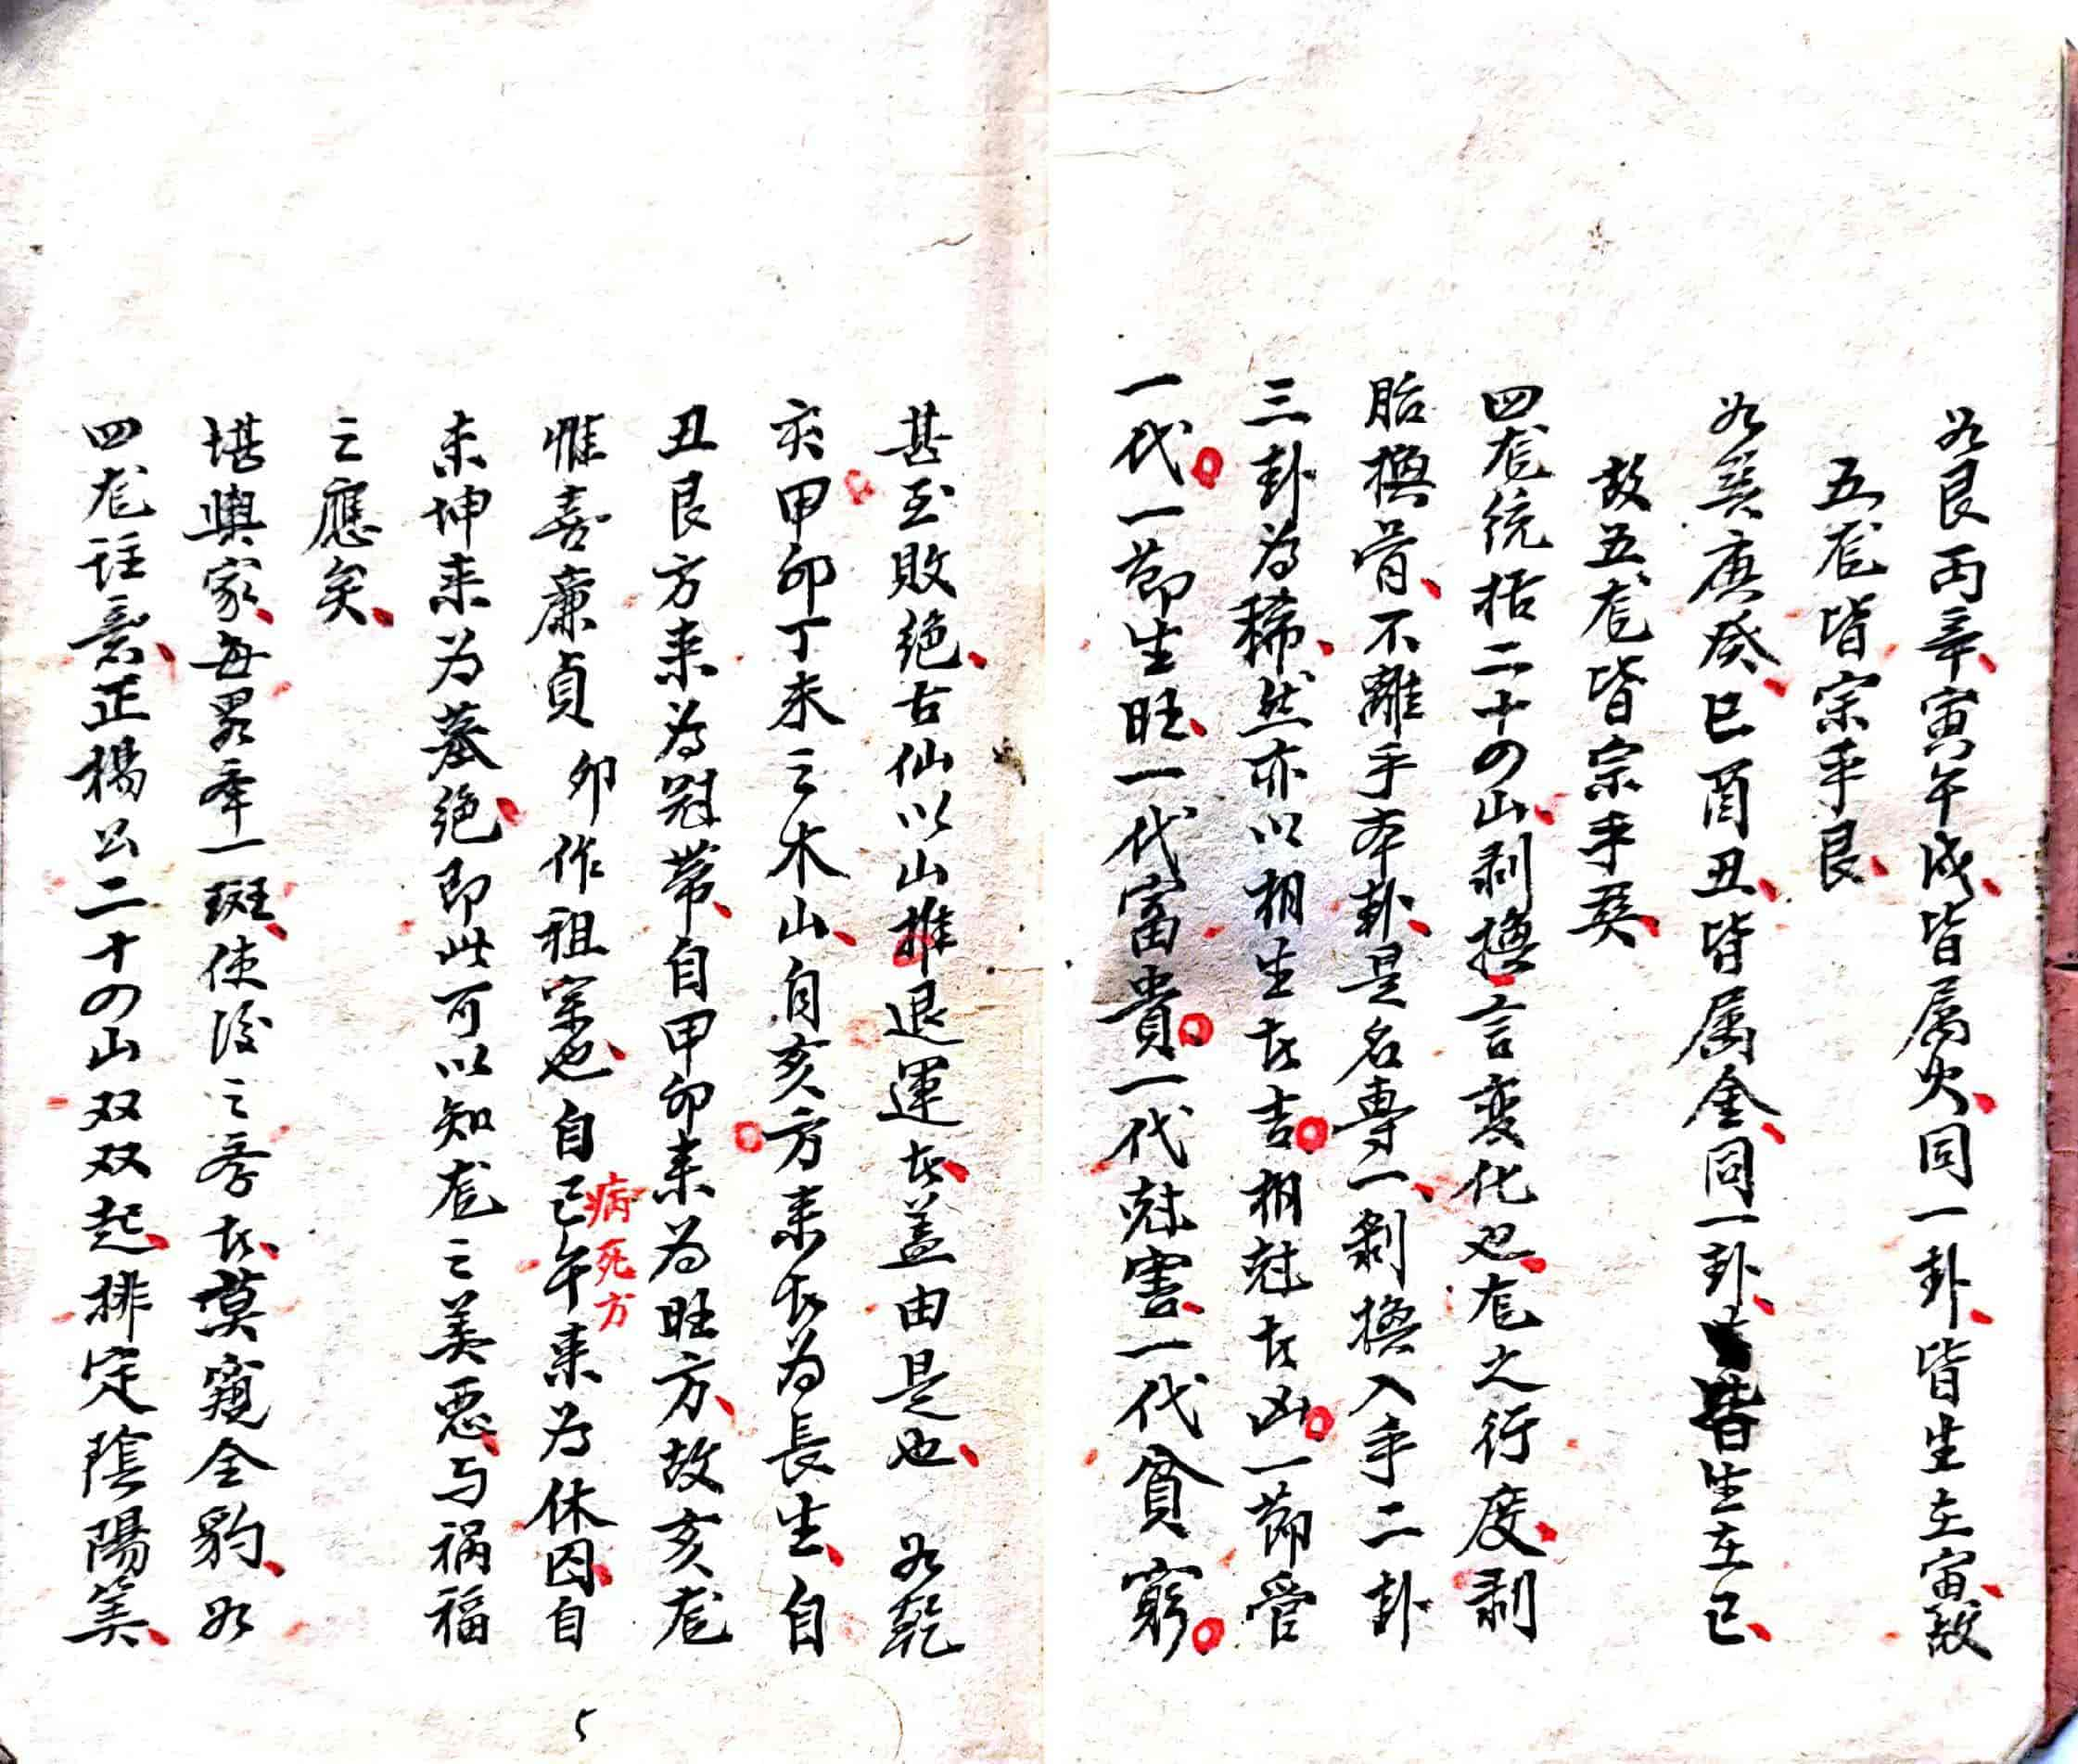 如艮丙辛寅午戌皆属火同一卦皆生在寅故
五尨皆宗乎艮
如巽庚癸巳酉丑皆属金同一卦皆生在巳
故五尨皆宗乎巽
四尨统括二十四山剥換言变化也尨之行度剥
胎換骨不離乎本卦是名專一剥換入手二卦
三卦为稀然亦以相生者吉相尅者凶一節管
一代一節生旺一代富貴一代尅害一代貧窮
甚至敗绝古仙以山推退運者盖由是也 如乾
亥甲卯丁未之木山自亥方来者为長生自
丑艮方来为冠带自甲卯来为旺方故亥尨
惟喜廉貞 卯作祖宗也自巳午来为休囚自
病死方
未坤来为墓绝即此可以知尨之美惡与禍福
之應矣
堪輿家每畧牽一斑使後之学者莫窺全豹如
四尨註意正楊公二十四山双双起排定陰陽筭
5